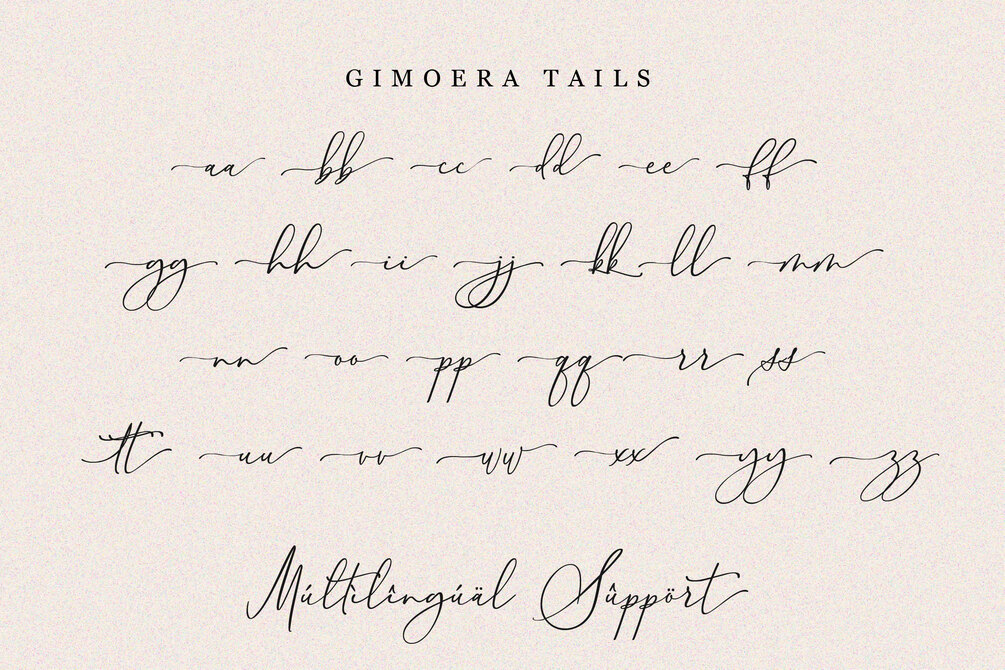 GIMOERA TAILS
aa bb cc dd ee ff
gg hh ii jj kk ll mm
nn oo pp qq rr ss
tt uu vv ww xx yy zz
Múltìlîngúäl Sûppört